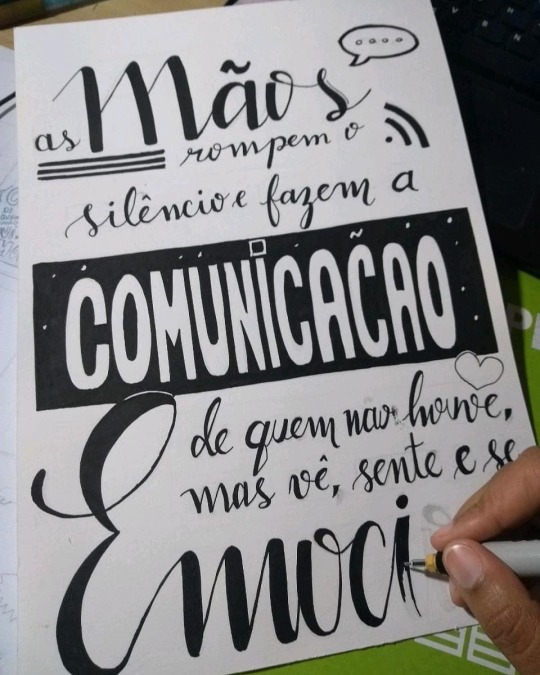 as Mãos
rompem o
silêncio e fazem a
COMUNICAÇÃO
de quem não houve,
mas vê, sente e se
Emoci